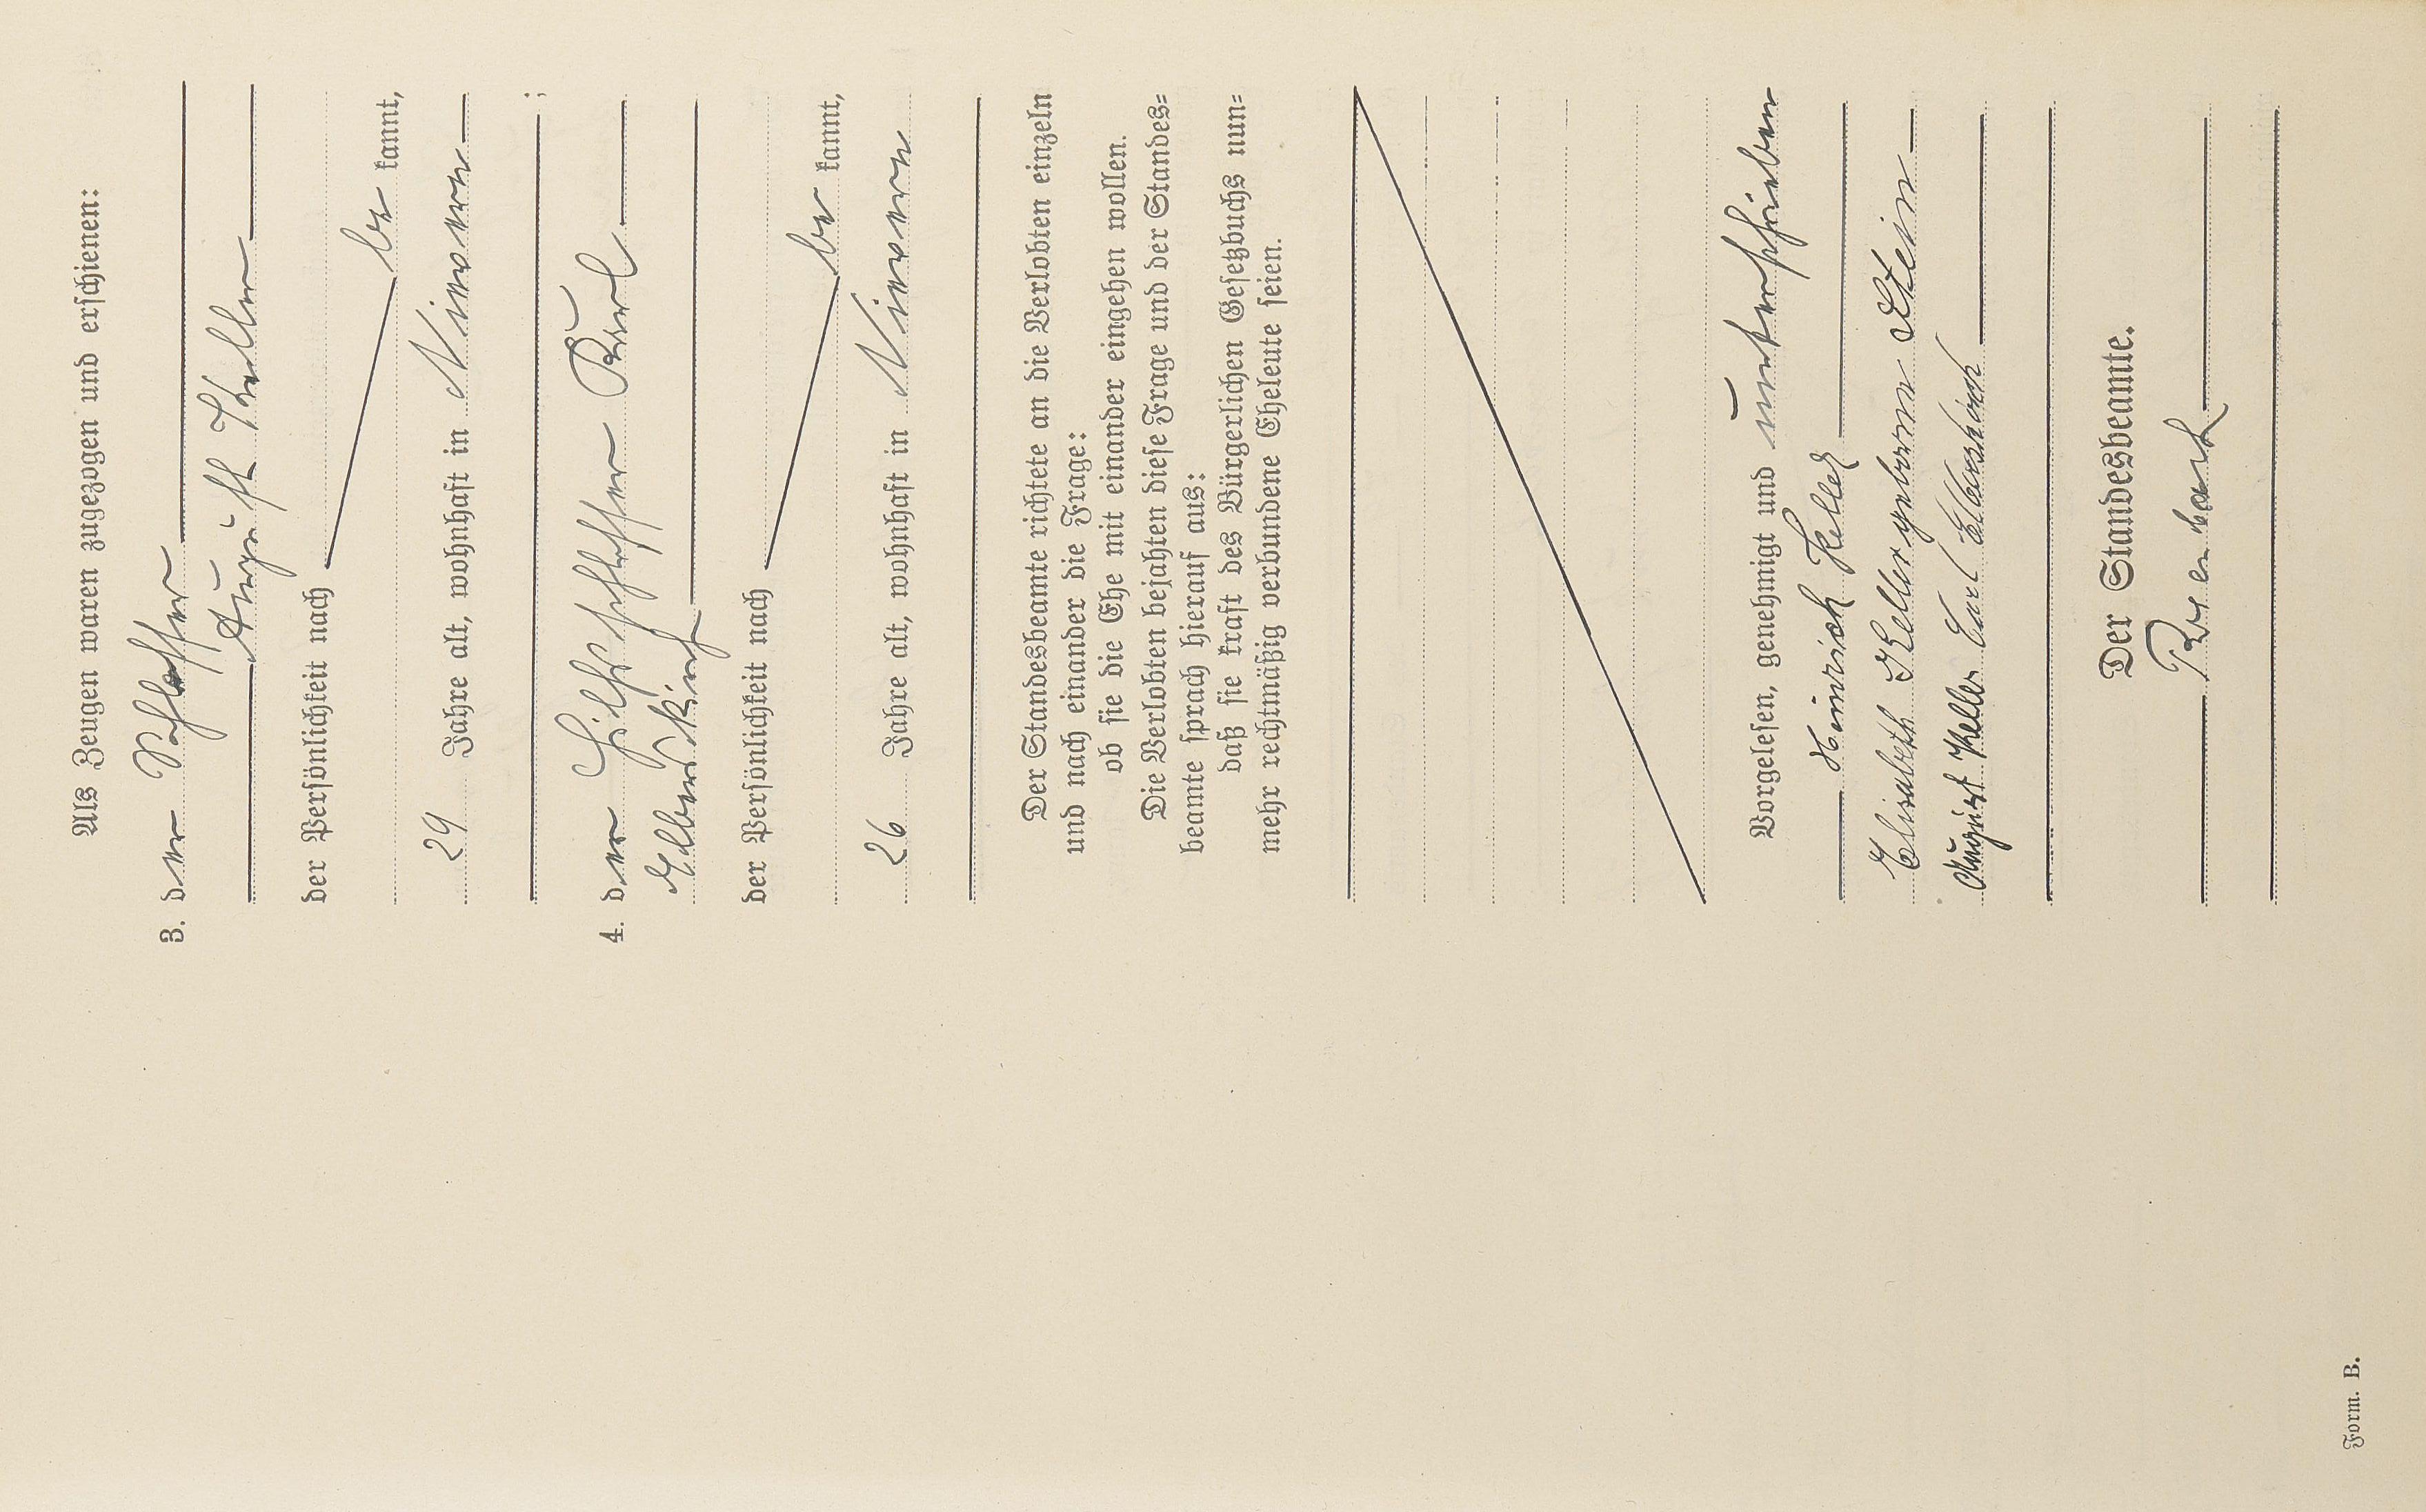 Als Zeugen waren zugezogen und erschienen:
3. der Schlosser
August Keller
der Persönlichkeit nach
be kannt,
29 Jahre alt, wohnhaft in Nievern
;
4. der Hilfsschlosser Karl
Elberskirch
der Persönlichkeit nach
be kannt,
26 Jahre alt, wohnhaft in Nievern
Der Standesbeamte richtete an die Verlobten einzeln
und nach einander die Frage:
ob sie die Ehe mit einander eingehen wollen.
Die Verlobten bejahten diese Frage und der Standes=
beamte sprach hierauf aus:
daß sie kraft des Bürgerlichen Gesetzbuchs nun=
mehr rechtmäßig verbundene Eheleute seien.
Vorgelesen, genehmigt und unterschrieben
Heinrich Keller
Elisabeth Keller geborene Stein
August Keller Carl Elberskirch
Der Standesbeamte.
Form. B.